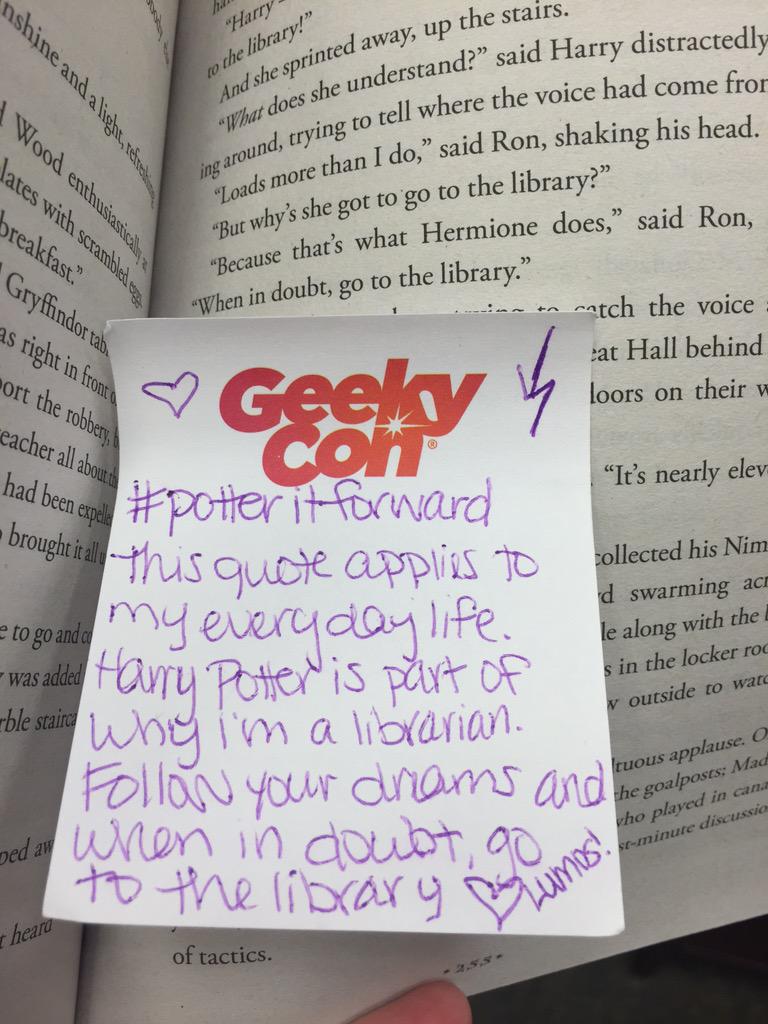 nshine and a light, refreshing
Wood enthusiastically
lates with scrambled eggs.
breakfast."
Gryffindor tab
as right in front
ort the robbery,
eacher all about
had been expelle
brought it all
e to go and
was added
rble stairca
ped aw
t heard
"Harry
to the library!"
And she sprinted away, up the stairs.
"What does she understand?" said Harry distractedly
ing around, trying to tell where the voice had come from
"Loads more than I do," said Ron, shaking his head.
"But why's she got to go to the library?"
"Because that's what Hermione does," said Ron,
"When in doubt, go to the library."
trying to catch the voice
eat Hall behind
loors on their w
"It's nearly elev
collected his Nim
d swarming acr
le along with the
s in the locker roo
w outside to watc
ltuous applause. O
he goalposts; Mad
who played in cana
st-minute discussio
of tactics.
255
Geeky
Con®
#potteritforward
This quote applies to
my everyday life.
Harry Potter is part of
why I'm a librarian.
Follow your dreams and
when in doubt, go
to the library
Lumos!